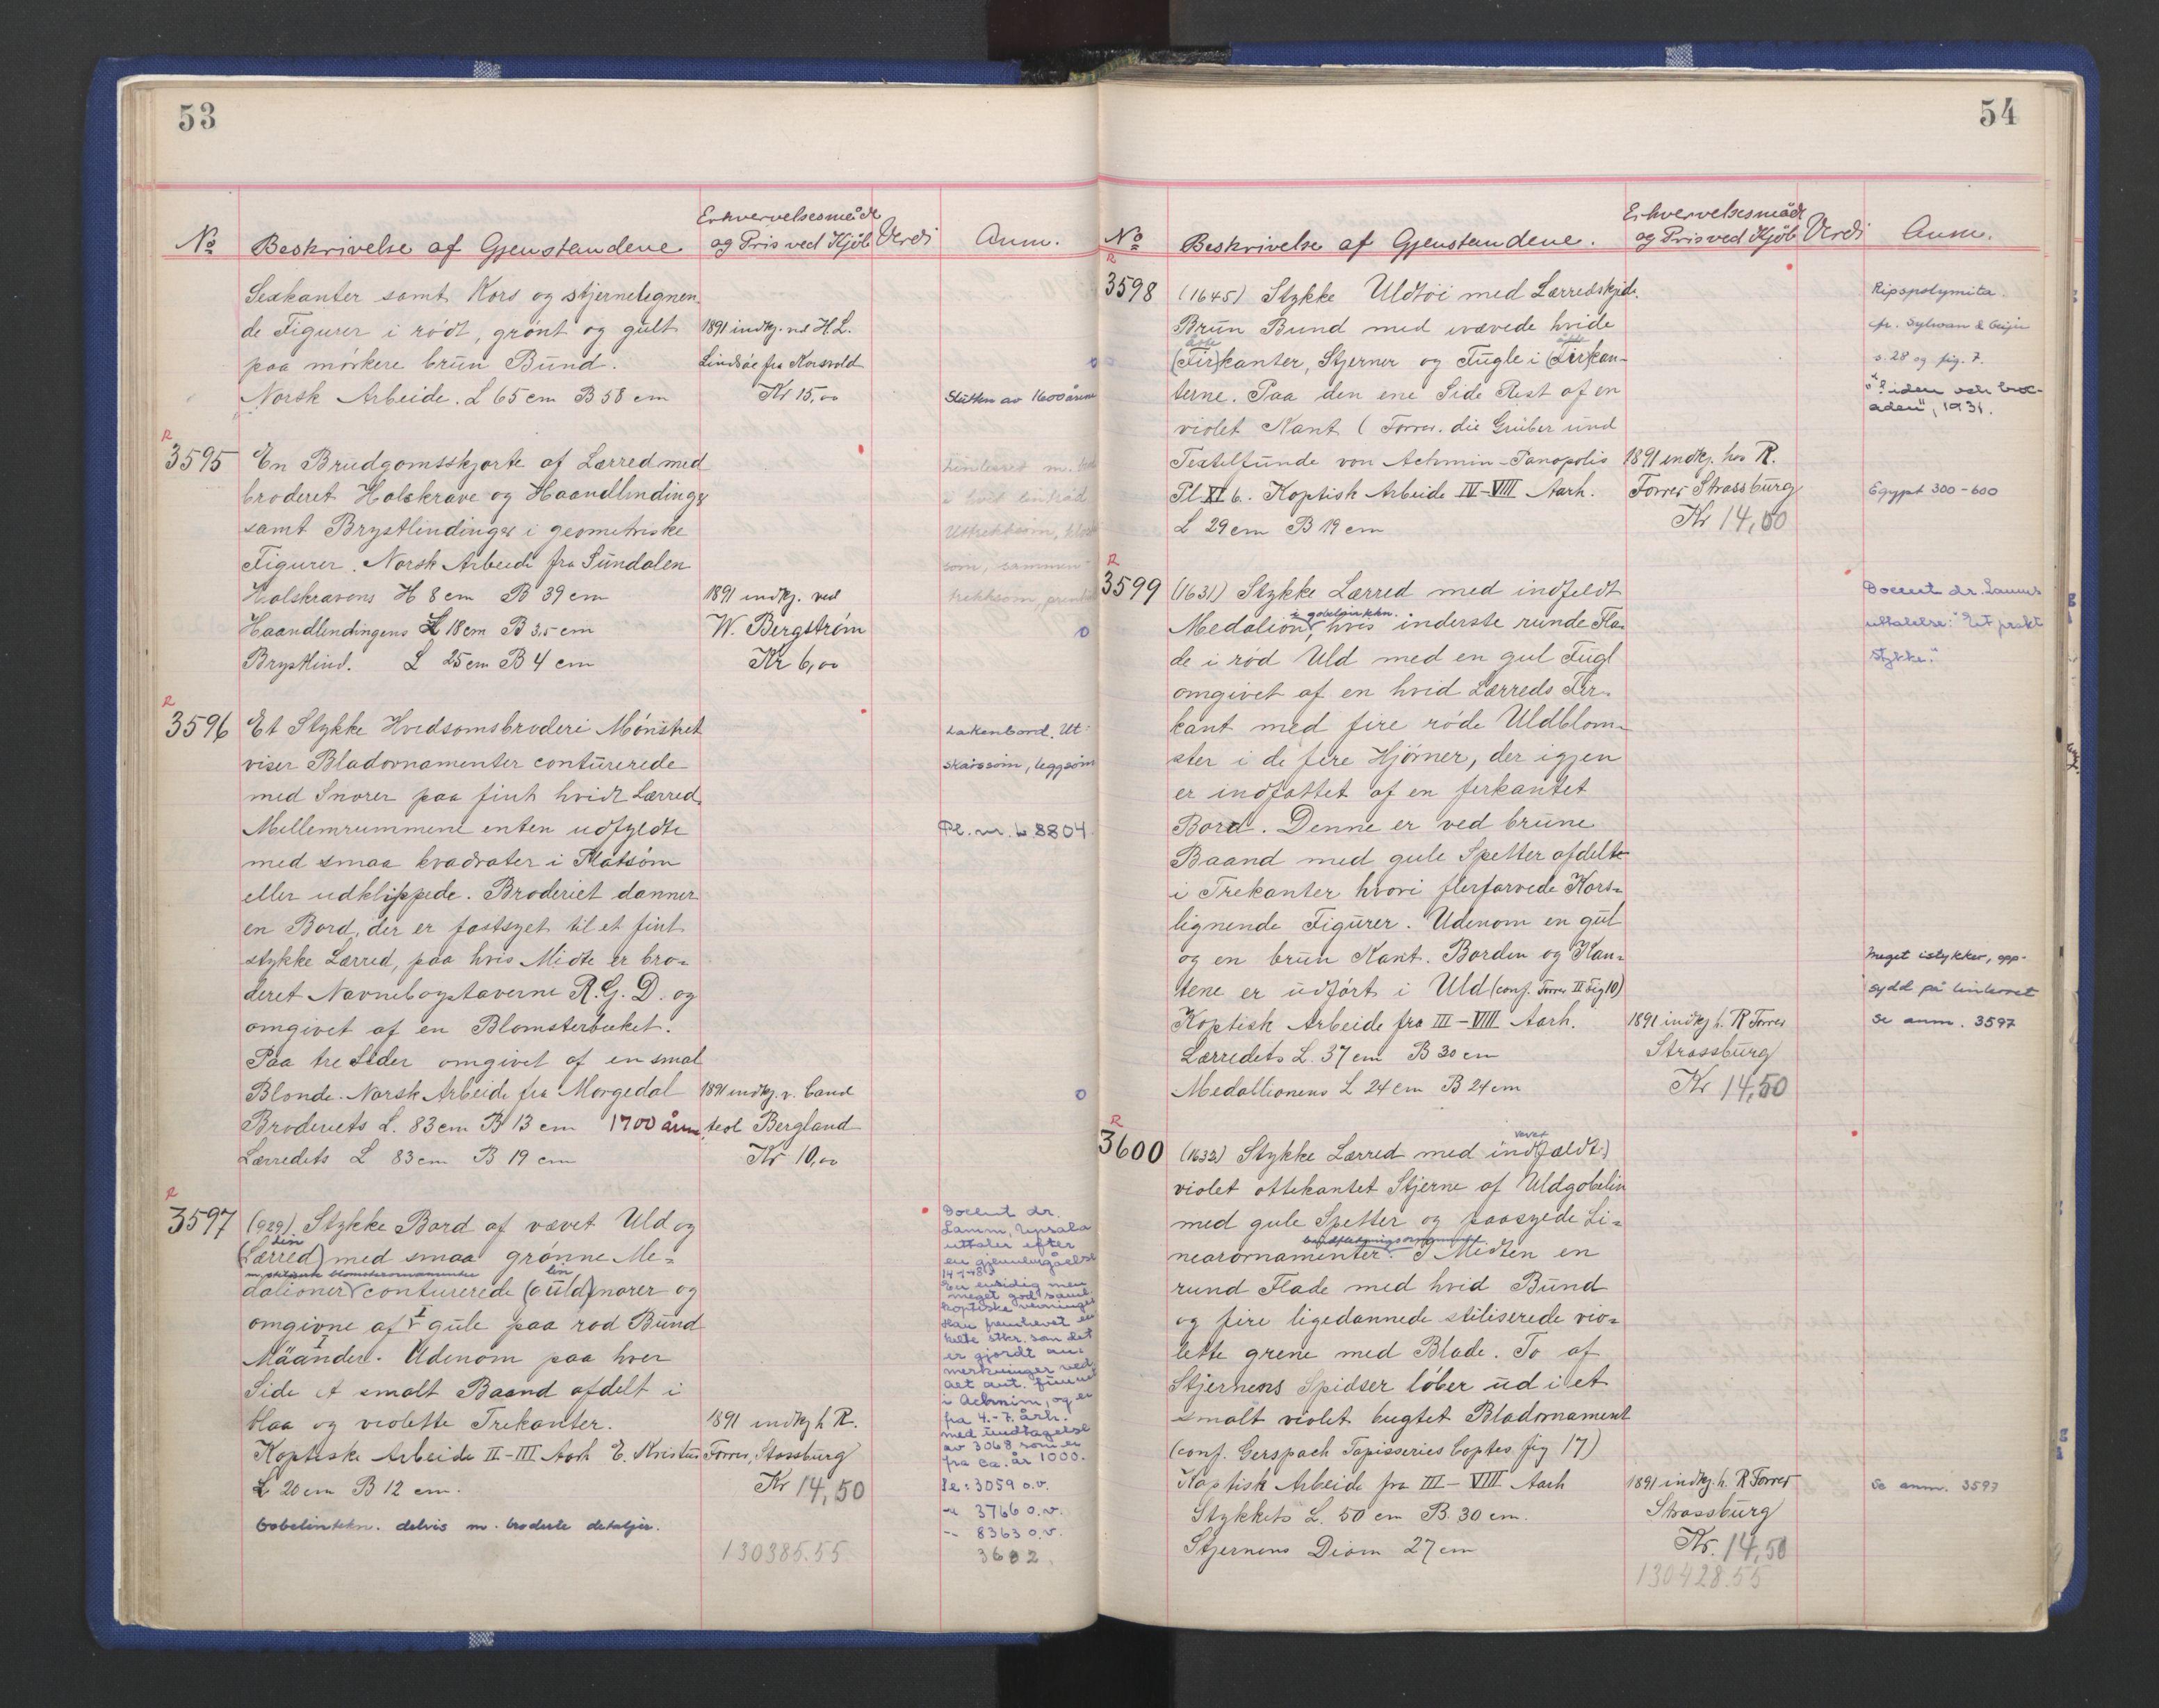 53
No Beskrivelse af Gjenstandene Erhvervelsesmåde og Pris ved Kjöb Verdi Anm.
Sexkanter samt Kors og stjernelignen-
de Figurer i rödt, grönt og gult
paa mörkere brun Bund.
Norsk Arbeide. L 65 cm B 58 cm
1891 indkj. ved H L.
Lindsöe fra Korsvold
Kr 15,00
Slutten av 1600 årene
R
3595 En Brudgomsskjorte af Lærred med
broderet Halskrave og Haandlindinger
samt Brystlindinger i geometriske
Figurer. Norsk Arbeide fra Sundalen
Halskravens H 8 cm B 39 cm
Haandlindingens L 18 cm B 3,5 cm
Brystlind. L 25 cm B 4 cm
1891 indkj. ved
W. Bergström
Kr 6,00
Linlerred m.
i hvit lintråd
Uttrekksöm,
söm, sammen-
trekksöm,
0
R
3596 Et Stykke Hvidsömsbroderi Mönstret
viser Bladornamenter conturerede
med Snorer paa fint hvidt Lærred.
Mellemrummene enten udfyldte
med smaa kvadrater i Flatsöm
eller udklippede. Broderiet danner
en Bord, der er fastsyet til et fint
stykke Lærred, paa hvis Midte er bro-
deret Navnebogstaverne R. G. D. og
omgivet af en Blomsterbuket.
Paa tre Sider omgivet af en smal
Blonde. Norsk Arbeide fra Morgedal
Broderiets L. 83 cm B 13 cm 1700 årene
Lærredets L 83 cm B 19 cm
1891 indkj. v. Cand
teol Bergland
Kr 10,00
Lakenbord. Ut-
skårssöm, leggsöm
Pl. nr. L 8804
0
R
3597 (929) Stykke Bord af vævet Uld og
lin
(Lærred) med smaa grönne Me-
m. stiliserte blomsterornamenter lin
dalioner conturerede (Uld)snorer og
omgivne af gule paa rød Bund
Mäander. Udenom paa hver
Side et smalt Baand afdelt i
blaa og violette Trekanter.
Koptiske Arbeide II-III Aarh E. Kristus
L 20 cm B 12 cm.
Gobelinteknn. delvis m. broderte detaljer.
1891 indkj h R.
Forrer, Strassburg
Kr 14,50
130385.55
Docent dr.
Lamm, Upsala
uttaler efter
en gjennemgåelse
En ensidig men
meget god saml.
koptiske vevninger
Han fremhevet en-
kelte stkr. som det
er gjordt an-
merkninger ved.
Alt ant. funnet
i Achmim, og er
fra 4.-7. årh.
med undtagelse
av 3068 som er
fra ca. år 1000.
Se: 3059 o.v.
3766 o.v.
8363 o.v.
3602
54
No Beskrivelse af Gjenstandene. Erhvervelsesmåde og Pris ved Kjöb Verdi Anm.
R
3598 (1645) Stykke Uldtöi med Lærredskjede.
Brun Bund med ivævede hvide
(Fir)kanter, Stjerner og Fugle i (Fir)kan-
terne. Paa den ene Side Rest af en
violet Kant (Forrer. die Gräber und
Textilfunde von Achmin-Panopolis
Pl XI 6. Koptisk Arbeide IV-VIII Aarh.
L 29 cm B 19 cm
1891 indkj. hos R.
Forrer Strassburg
Kr 14,00
Ripspolymita.
cfr. Sylwan & Geijer
s. 28 og fig. 7.
"Siden och broc-
aden", 1931.
Egypt 300-600
R
3599 (1631) Stykke Lærred med indfeldt
i gobelintekn.
Medalion, hvis inderste runde Fla-
de i rød Uld med en gul Fugl
omgivet af en hvid Lærreds Fir-
kant med fire røde Uldblom-
ster i de fire Hjörner, der igjen
er indfattet af en firkantet
Bord. Denne er ved brune
Baand med gule Spetter afdelte
i Trekanter hvori flerfarvede Kors-
lignende Figurer. Udenom en gul
og en brun Kant. Borden og Kan-
tene er udfört i Uld (conf. Forrer II Fig 10)
Koptisk Arbeide fra III-VIII Aarh.
Lærredets L. 37 cm B 30 cm
Medallionens L 24 cm B 24 cm
1891 indkj h. R Forrer
Strassburg
Kr 14,50
Docent dr. Lamms
uttalelse: "Et prakt
stykke."
Meget istykker, opp-
sydd på linlerret
Se anm. 3597
R
3600 (1632) Stykke Lærred med indfældt)
vevet
violet ottekantet Stjerne af Uldgobelin
med gule Spetter og paasyede Li-
nearornamenter. I Midten en
rund Flade med hvid Bund
og fire ligedannede stiliserede vio-
lette grene med Blade. To af
Stjernens Spidser löber ud i et
smalt violet bugtet Bladornament
(conf. Gerspach Tapisseries Coptes fig 17)
Koptisk Arbeide fra III-VIII Aarh
Stykkets L. 50 cm B. 30 cm.
Stjernens Diam 27 cm
1891 indkj. h. R Forrer
Strassburg
Kr. 14,50
130428.55
Se anm. 3597